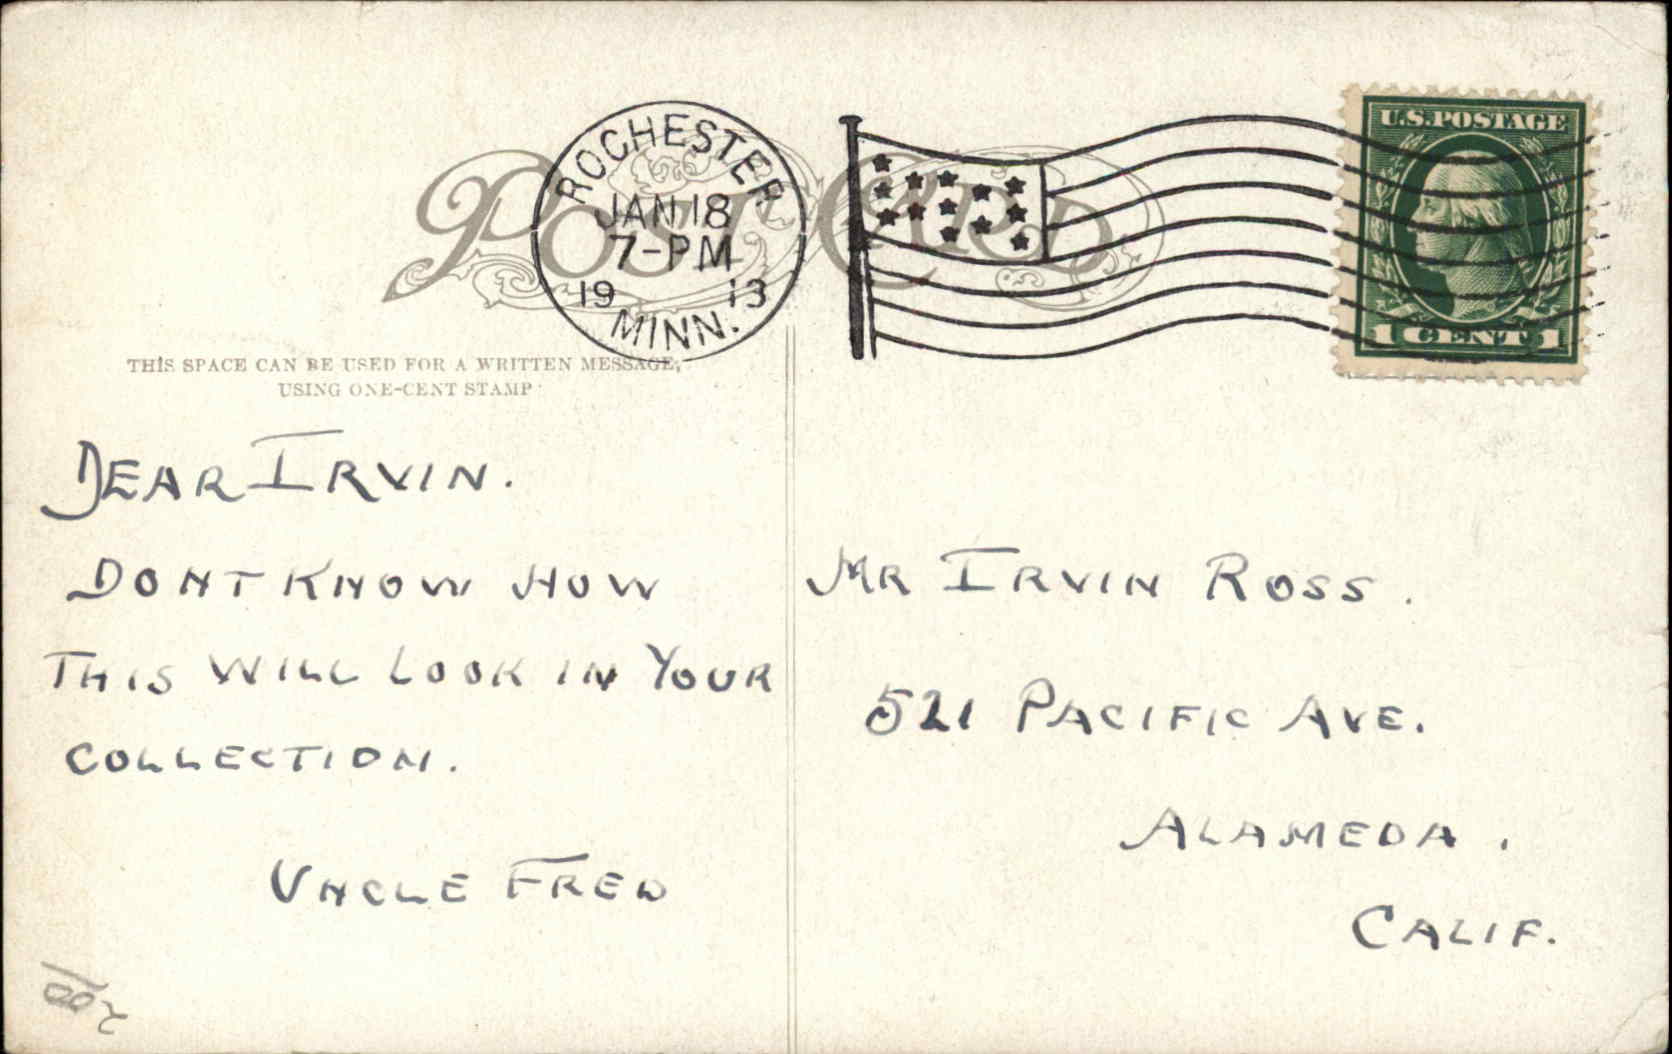 POST CARD
ROCHESTER
JAN 18
7-PM
19 13
MINN.
U.S.POSTAGE
1 CENT 1
THIS SPACE CAN BE USED FOR A WRITTEN MESSAGE,
USING ONE-CENT STAMP
DEAR IRVIN.
DONT KNOW HOW
THIS WILL LOOK IN YOUR
COLLECTION.
UNCLE FRED
MR IRVIN ROSS.
521 PACIFIC AVE.
ALAMEDA.
CALIF.